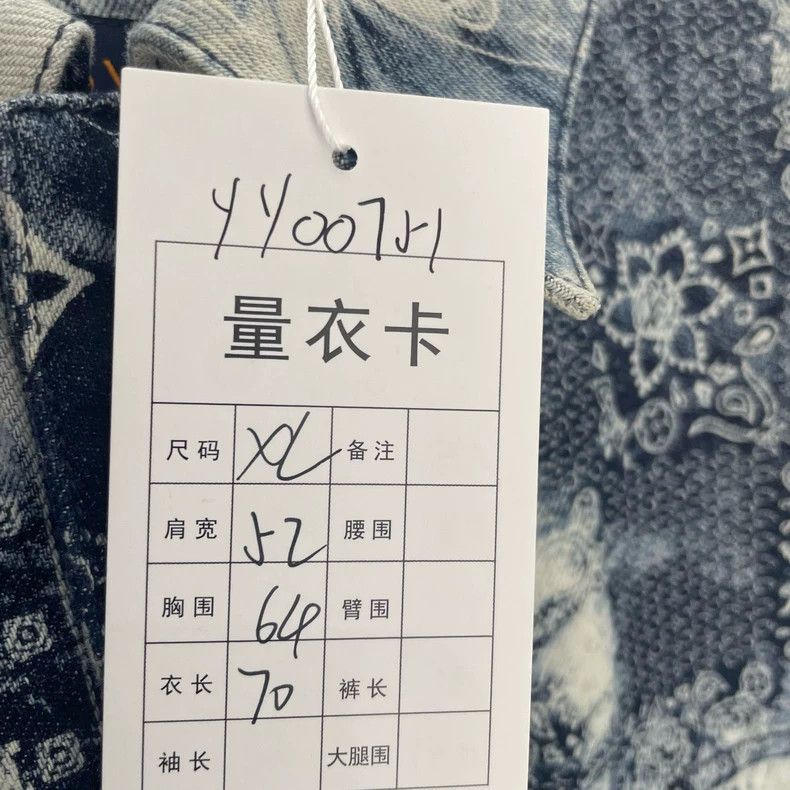 YY00751
量衣卡
尺码 XL 备注
肩宽 52 腰围
胸围 64 臂围
衣长 70 裤长
袖长 大腿围